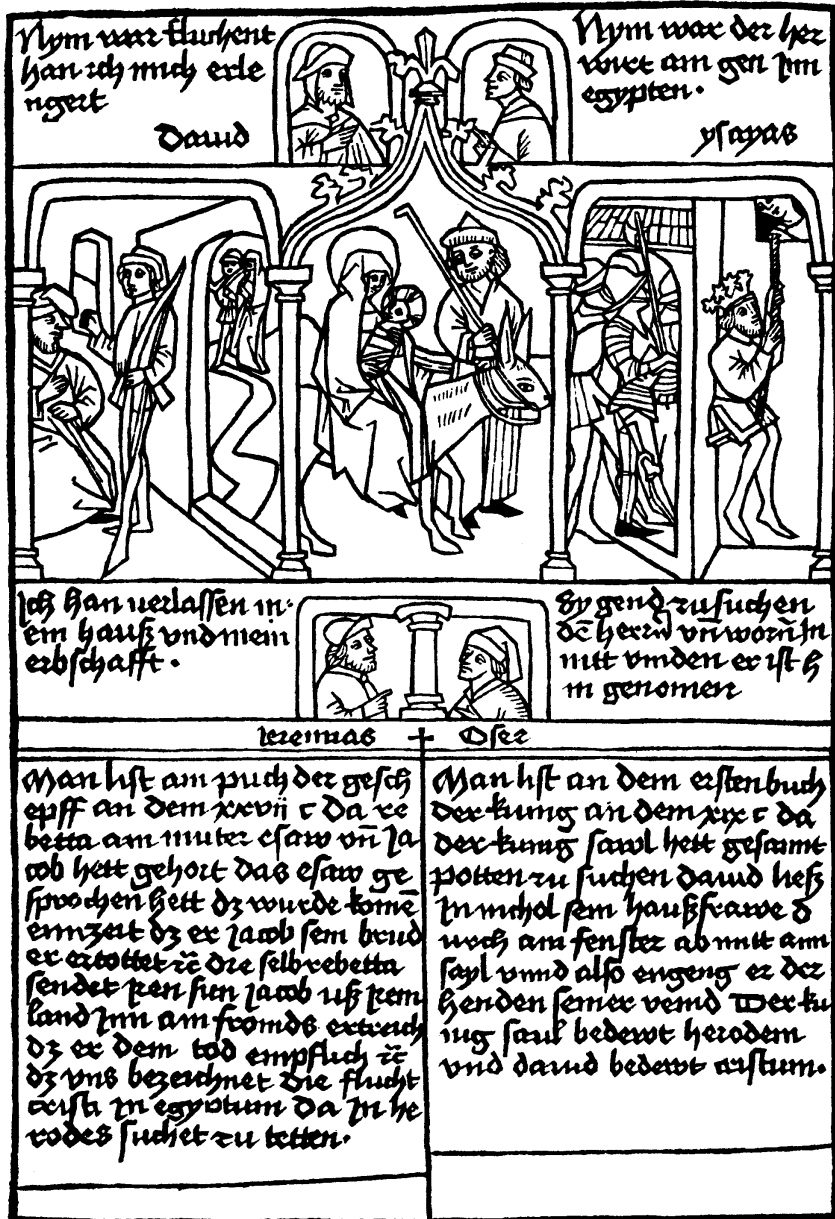 Nym war fluchent
han ich mich erle
ngert
Dauid
Nym war der her
wirt am gen Inn
egypten.
ysayas
Ich han uerlassen in⸗
em hauß vnd mein
erbschafft.
Sy gend zu suchen
dē herrn vn̄ worn̄ In
nitt vinden er ist h
in genomen
Ieremias
Osee
Man list am puch der gesch
epff an dem xxvii c da re
betta am muter esaw vn̄ Ja
cob hett gehort das esaw ge
sprochen hett dz wurde komē
einzeit dz er Jacob sein brud
er ertottet ꝛc̄ die selb rebetta
sendet Iren sun Jacob uß Irem
land Inn am fromds ertreich
dz er dem tod empflich ꝛc̄
dz vns bezeichnet die flucht
cristi In egyptum da In he
rodes suchet zu tetten.
Man list an dem ersten buch
der kunig an dem xix c da
der kunig sawl hett gesannt
potten zu suchen dauid ließ
In michol sein haußfrawe d
urch am fenster ab mitt am
sayl vnnd also engeng er der
henden seiner veind Der ku
nig saul bedewt herodem
vnd dauid bedewt cristum.